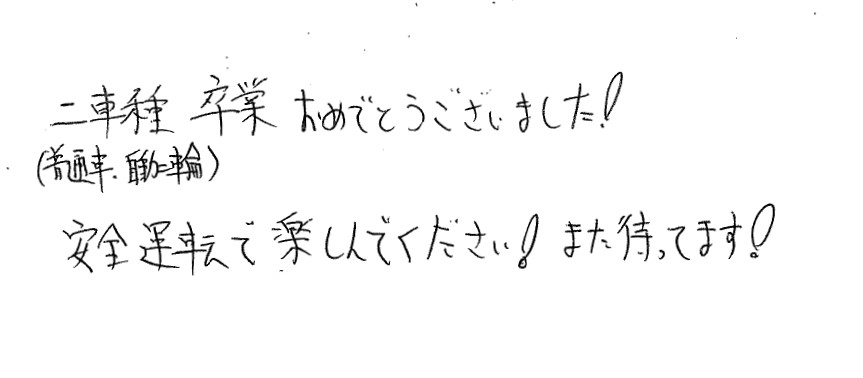 二車種 卒業 おめでとうございました!
(普通車、自動二輪)
安全運転で楽しんでください! また待ってます!